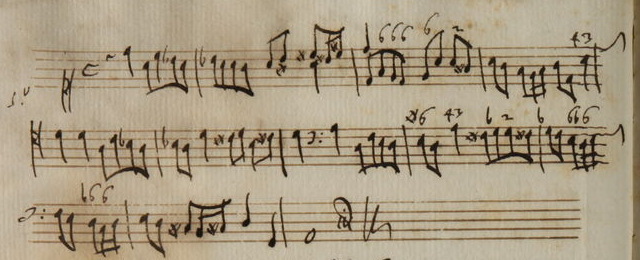 6 6 6 6 2 4 3
6 4 3 6 2 6 6 6 6
6 6 6